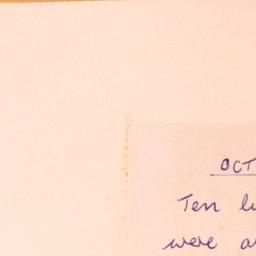 OCT
Ten
were